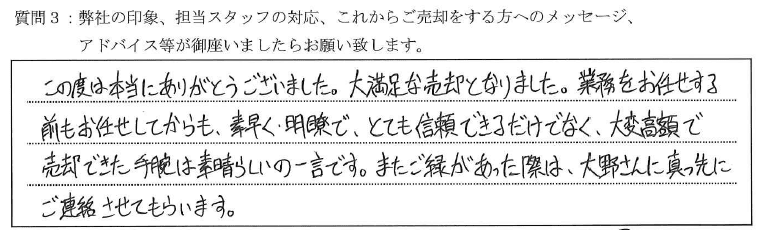 質問３：弊社の印象、担当スタッフの対応、これからご売却をする方へのメッセージ、
アドバイス等が御座いましたらお願い致します。
この度は本当にありがとうございました。大満足な売却となりました。業務をお任せする
前もお任せしてからも、素早く・明瞭で、とても信頼できるだけでなく、大変高額で
売却できた手腕は素晴らしいの一言です。またご縁があった際は、大野さんに真っ先に
ご連絡させてもらいます。